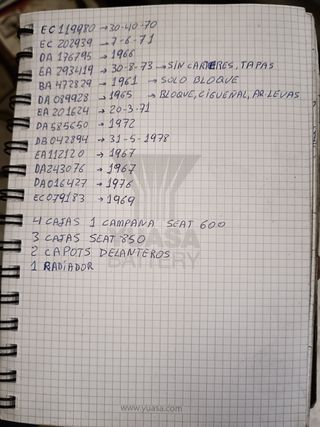 EC 119980 → 30-40-70
EC 202939 → 7-6-71
DA 176795 → 1966
EA 293419 → 30-8-73 → SIN CARTERES, TAPAS
BA 472829 → 1961 → SOLO BLOQUE
DA 089928 → 1965 → BLOQUE, CIGUEÑAL, AR. LEVAS
EA 201624 → 20-3-71
DA 585650 → 1972
DB 042894 → 31-5-1978
EA 112120 → 1967
DA 243076 → 1967
DA 016427 → 1976
EC 079183 → 1969
4 CAJAS 1 CAMPANA SEAT 600
3 CAJAS SEAT 850
2 CAPOTS DELANTEROS
1 RADIADOR
YUASA
BATTERY
www.yuasa.com